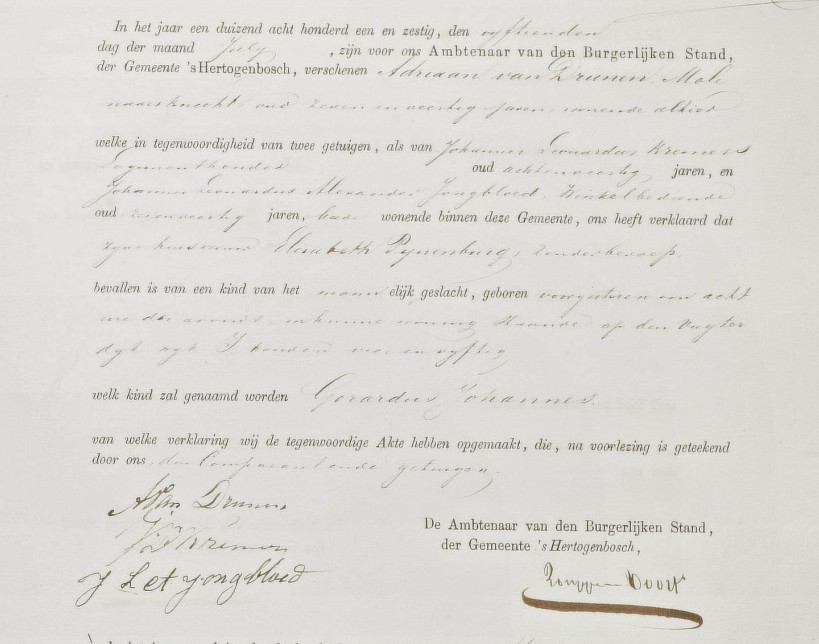 In het jaar een duizend acht honderd een en zestig, den vyftienden
dag der maand July , zijn voor ons Ambtenaar van den Burgerlijken Stand,
der Gemeente 's Hertogenbosch, verschenen Adriaan van Drunen, Mole
naarsknecht, oud zeven en veertig jaren, wonende alhier
welke in tegenwoordigheid van twee getuigen, als van Johannes Leonardus Kremers
Logementhouder oud achtenveertig jaren, en
Johannes Leonardus Alexander Jongbloed, Winkelbediende
oud zevenveertig jaren, beide wonende binnen deze Gemeente, ons heeft verklaard dat
zyne huisvrouw Elisabeth Pynenburg, zonder beroep,
bevallen is van een kind van het mann elijk geslacht, geboren voorgisteren om acht
ure des avonds, in hunne woning staande op den Vugter
dyk wyk I honderd vier en vyftig
welk kind zal genaamd worden Gerardus Johannes.
van welke verklaring wij de tegenwoordige Akte hebben opgemaakt, die, na voorlezing is geteekend
door ons, den Comparant ende getuigen.
A Van Drunen
Kremers
J L et Jongbloed
De Ambtenaar van den Burgerlijken Stand,
der Gemeente 's Hertogenbosch,